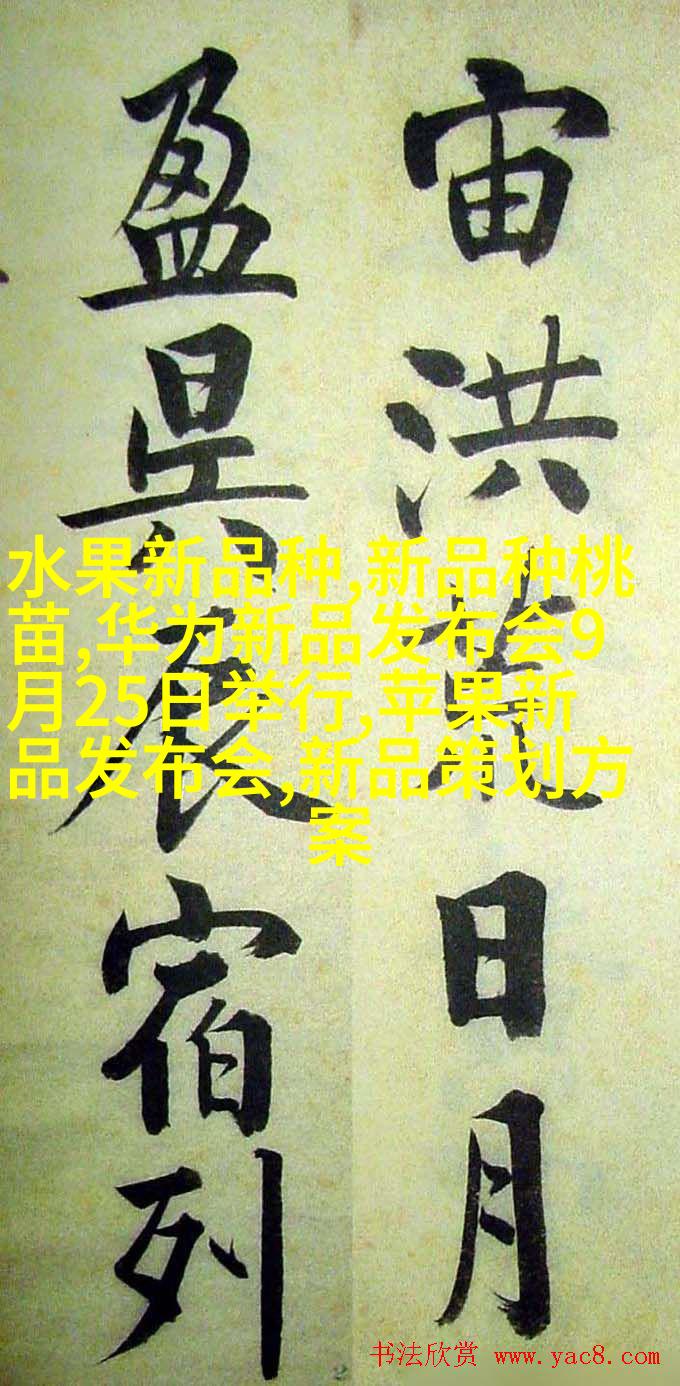 宙洪荒日月
盈昃辰宿列
水果新品种,新品种桃
苗,华为新品发布会9
月25日举行,苹果新
品发布会,新品策划方
案
书法欣赏 www.yac8.com